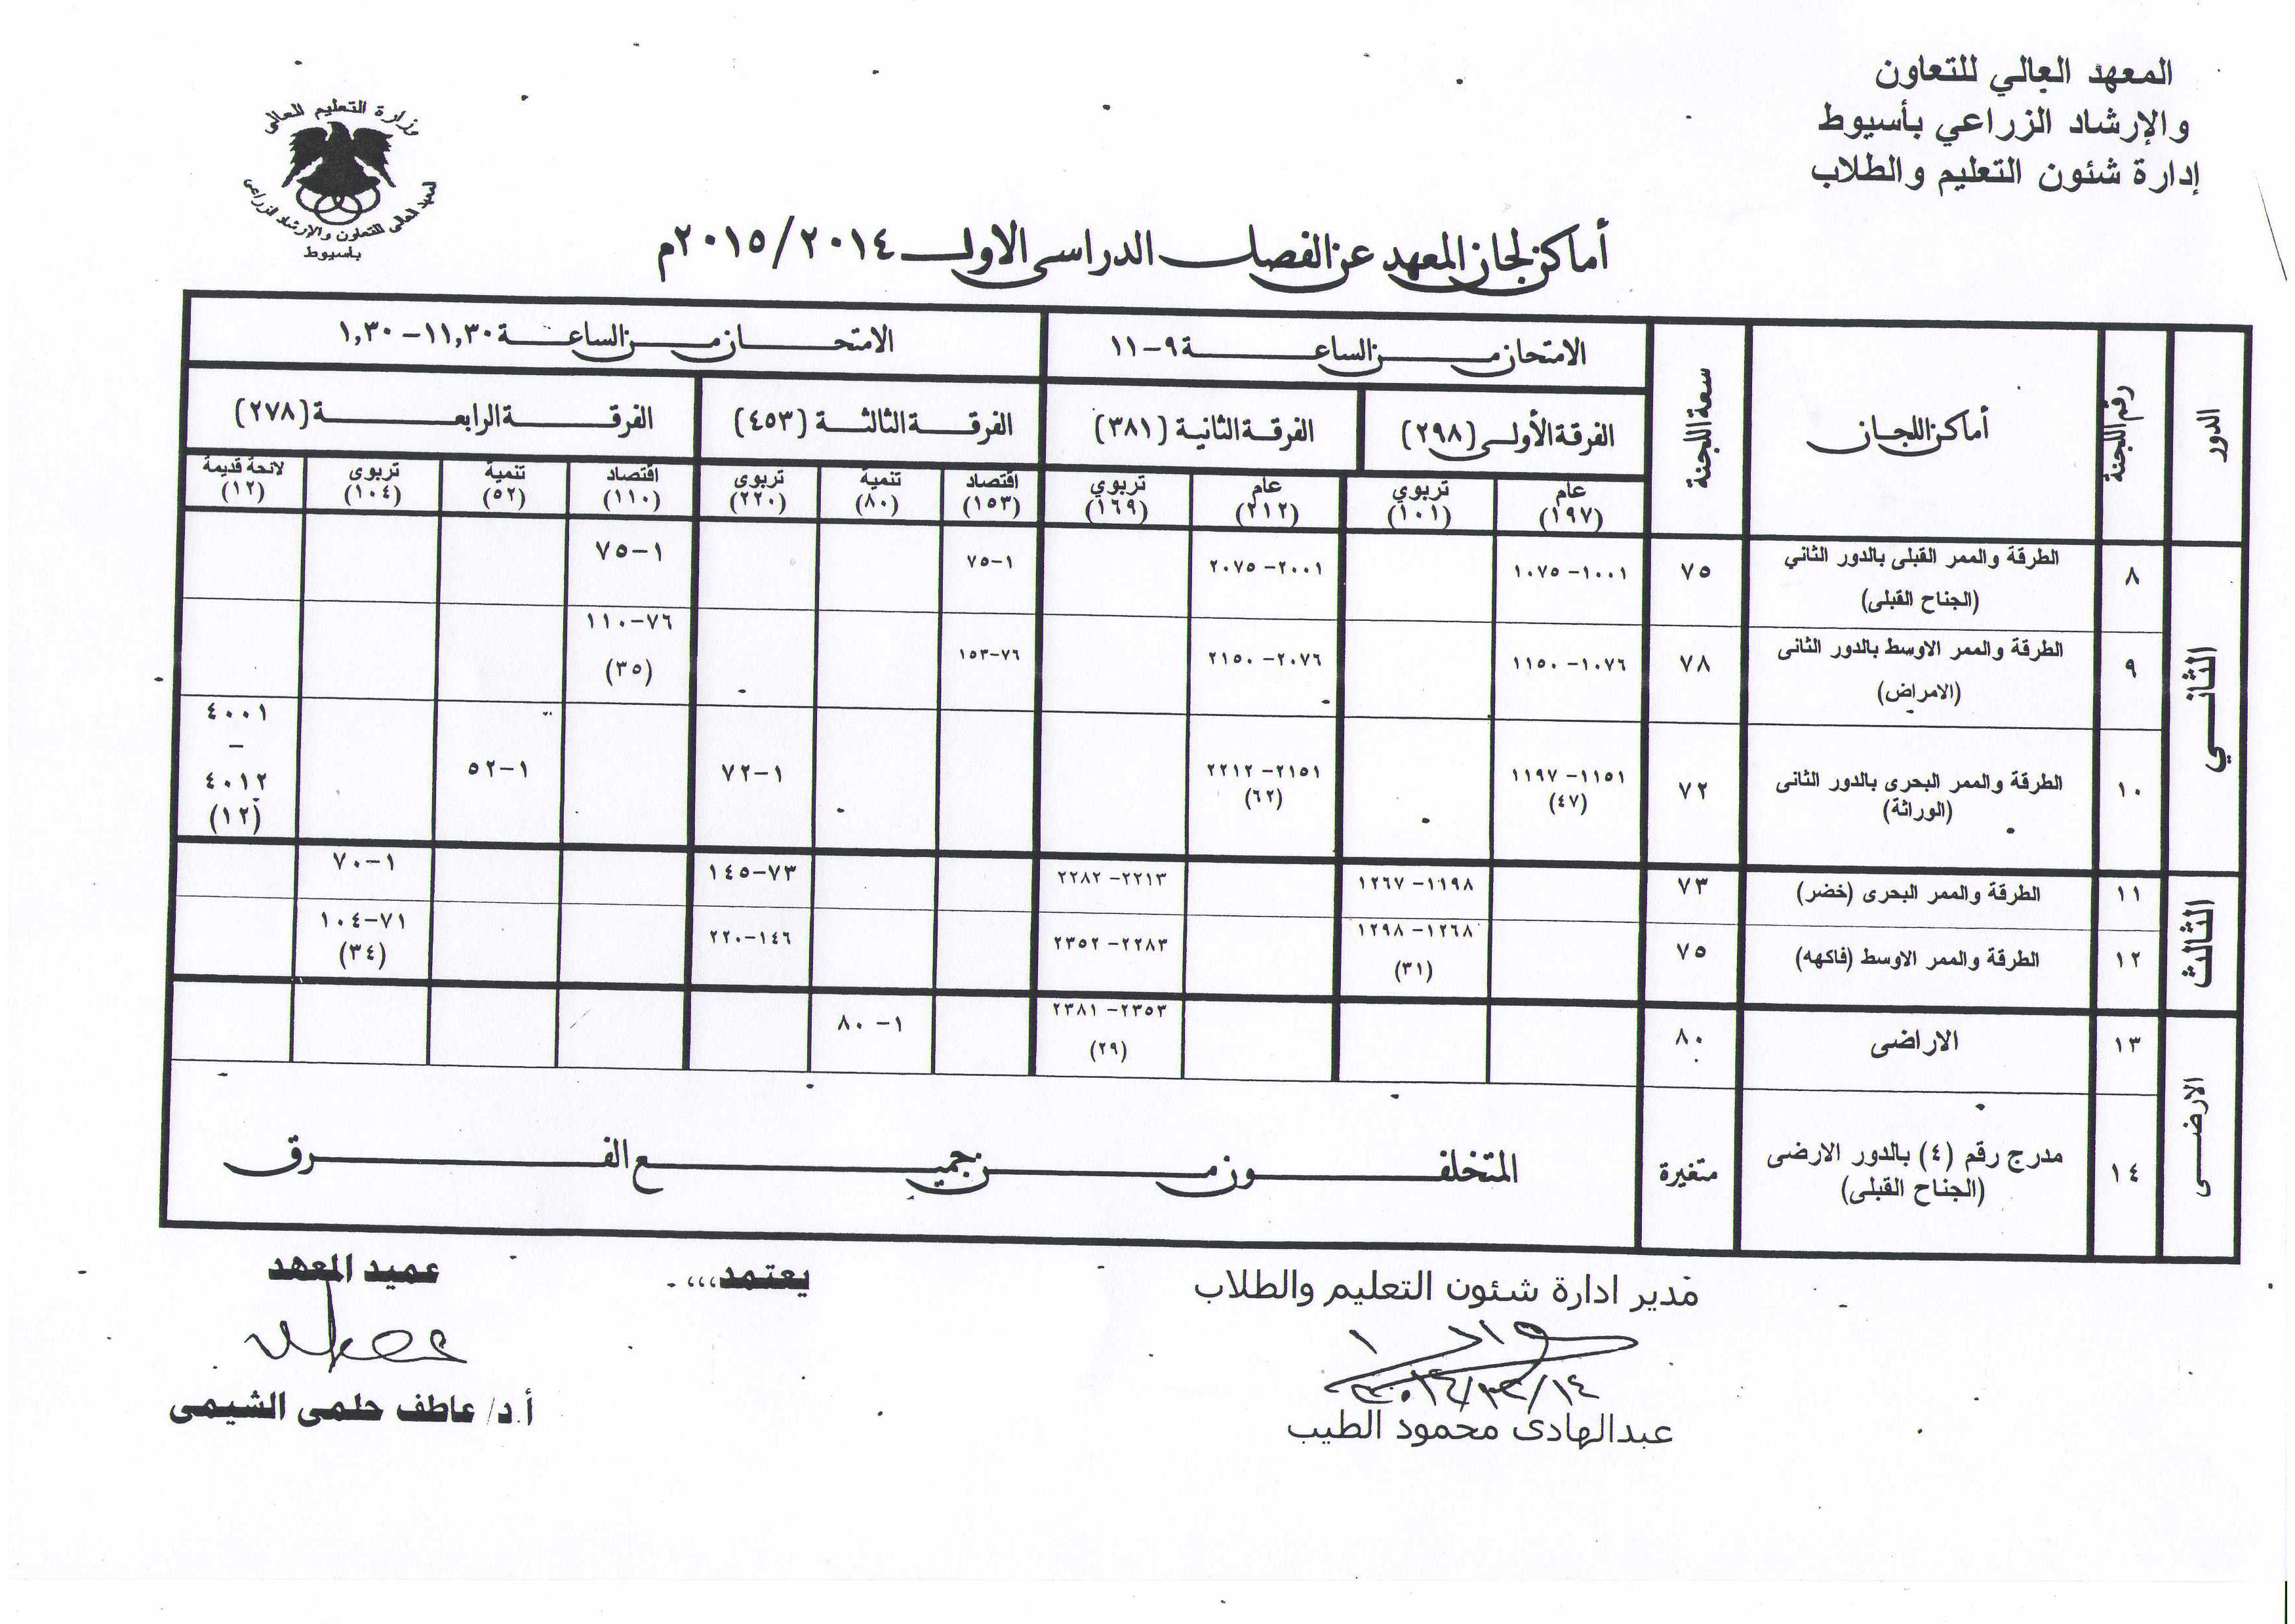 المعهد العالي للتعاون
والإرشاد الزراعي بأسيوط
إدارة شئون التعليم والطلاب
وزارة التعليم العالى
المعهد العالى للتعاون والإرشاد الزراعى
بأسيوط
أماكن لجان المعهد عن الفصل الدراسى الاول ٢٠١٥/٢٠١٤م
الدور
رقم اللجنة
أماكن اللجان
سعة اللجنة
الامتحان من الساعة ٩-١١
الامتحان من الساعة ١١,٣٠-١,٣٠
الفرقة الأولى (٢٩٨)
الفرقة الثانية (٣٨١)
الفرقة الثالثة (٤٥٣)
الفرقة الرابعة (٢٧٨)
عام (١٩٧)
تربوي (١٠١)
عام (٢١٢)
تربوي (١٦٩)
اقتصاد (١٥٣)
تنمية (٨٠)
تربوى (٢٢٠)
اقتصاد (١١٠)
تنمية (٥٢)
تربوى (١٠٤)
لائحة قديمة (١٢)
الثاني
٨ الطرقة والممر القبلى بالدور الثاني (الجناح القبلى) ٧٥ ١٠٠١-١٠٧٥ ٢٠٠١-٢٠٧٥ ١-٧٥ ١-٧٥
٩ الطرقة والممر الاوسط بالدور الثانى (الامراض) ٧٨ ١٠٧٦-١١٥٠ ٢٠٧٦-٢١٥٠ ٧٦-١٥٣ ٧٦-١١٠ (٣٥)
١٠ الطرقة والممر البحرى بالدور الثانى (الوراثة) ٧٢ ١١٥١-١١٩٧ (٤٧) ٢١٥١-٢٢١٢ (٦٢) ١-٧٢ ١-٥٢ ٤٠٠١ – ٤٠١٢ (١٢)
الثالث
١١ الطرقة والممر البحرى (خضر) ٧٣ ١١٩٨-١٢٦٧ ٢٢١٣-٢٢٨٢ ٧٣-١٤٥ ١-٧٠
١٢ الطرقة والممر الاوسط (فاكهه) ٧٥ ١٢٦٨-١٢٩٨ (٣١) ٢٢٨٣-٢٣٥٢ ١٤٦-٢٢٠ ٧١-١٠٤ (٣٤)
الارضى
١٣ الاراضى ٨٠ ٢٣٥٣-٢٣٨١ (٢٩) ١-٨٠
١٤ مدرج رقم (٤) بالدور الارضى (الجناح القبلى) متغيرة المتخلفون من جميع الفرق
مدير ادارة شئون التعليم والطلاب
يعتمد،،،
عميد المعهد
عبدالهادى محمود الطيب
أ.د/ عاطف حلمى الشيمى